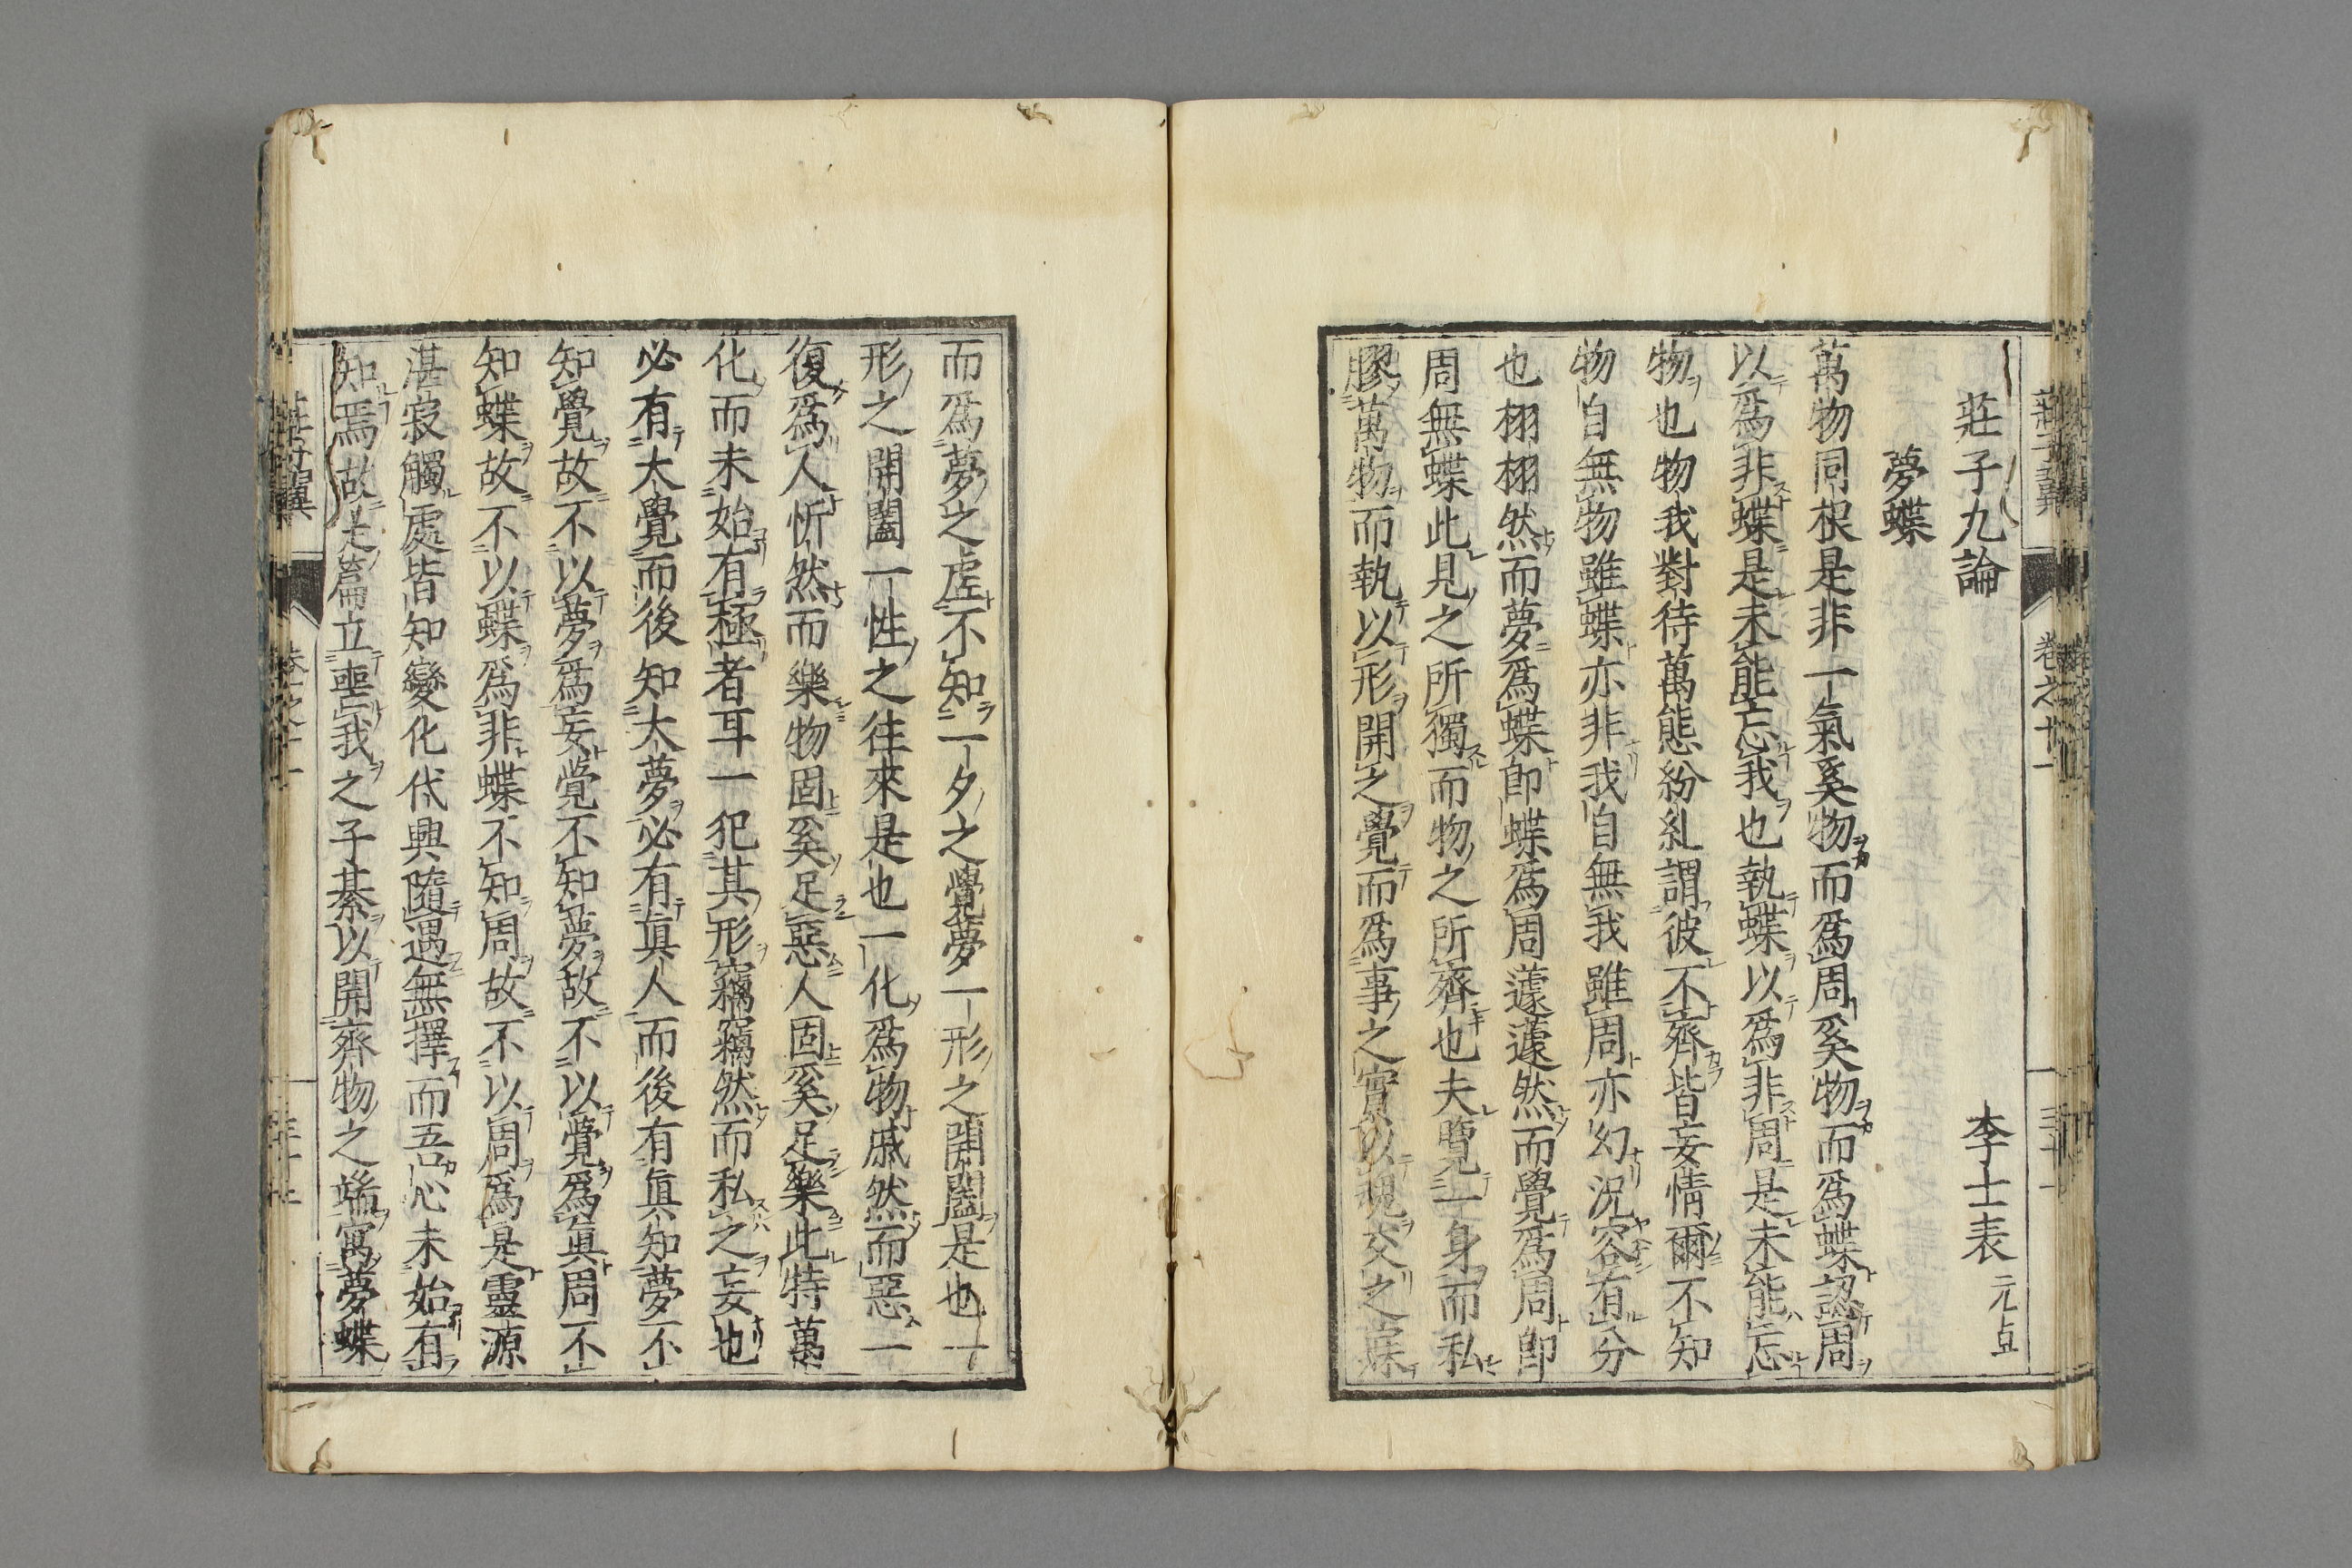 莊子九論　李士表元卓
夢蝶
萬物同根是非一氣奚物而爲周奚物而爲蝶認周
以爲非蝶是未能忘我也執蝶以爲非周是未能忘
物也物我對待萬態紛糺謂彼不齊皆妄情爾不知
物自無物雖蝶亦非我自無我雖周亦幻況容有分
也栩栩然而夢爲蝶卽蝶爲周蘧蘧然而覺爲周卽
周無蝶此見之所獨而物之所齊也夫覽一身而私
膠萬物而執以形開之覺而爲事之實以魂交之寐
而爲夢之虛不知一夕之覺夢一形之開闔是也一
形之開闔一性之往來是也一化爲物戚然而惡一
復爲人忻然而樂物固奚足惡人固奚足樂此特萬
化而未始有極者耳一犯其形竊竊然而私之妄也
必有大覺而後知大夢必有眞人而後有眞知夢不
知覺故不以夢爲妄覺不知夢故不以覺爲眞周不
知蝶故不以蝶爲非蝶不知周故不以周爲是靈源
湛寂觸處皆知變化代興隨遇無擇而吾心未始有
知焉故是篇立喪我之子綦以開齊物之端寓夢蝶
莊子翼　卷之十一